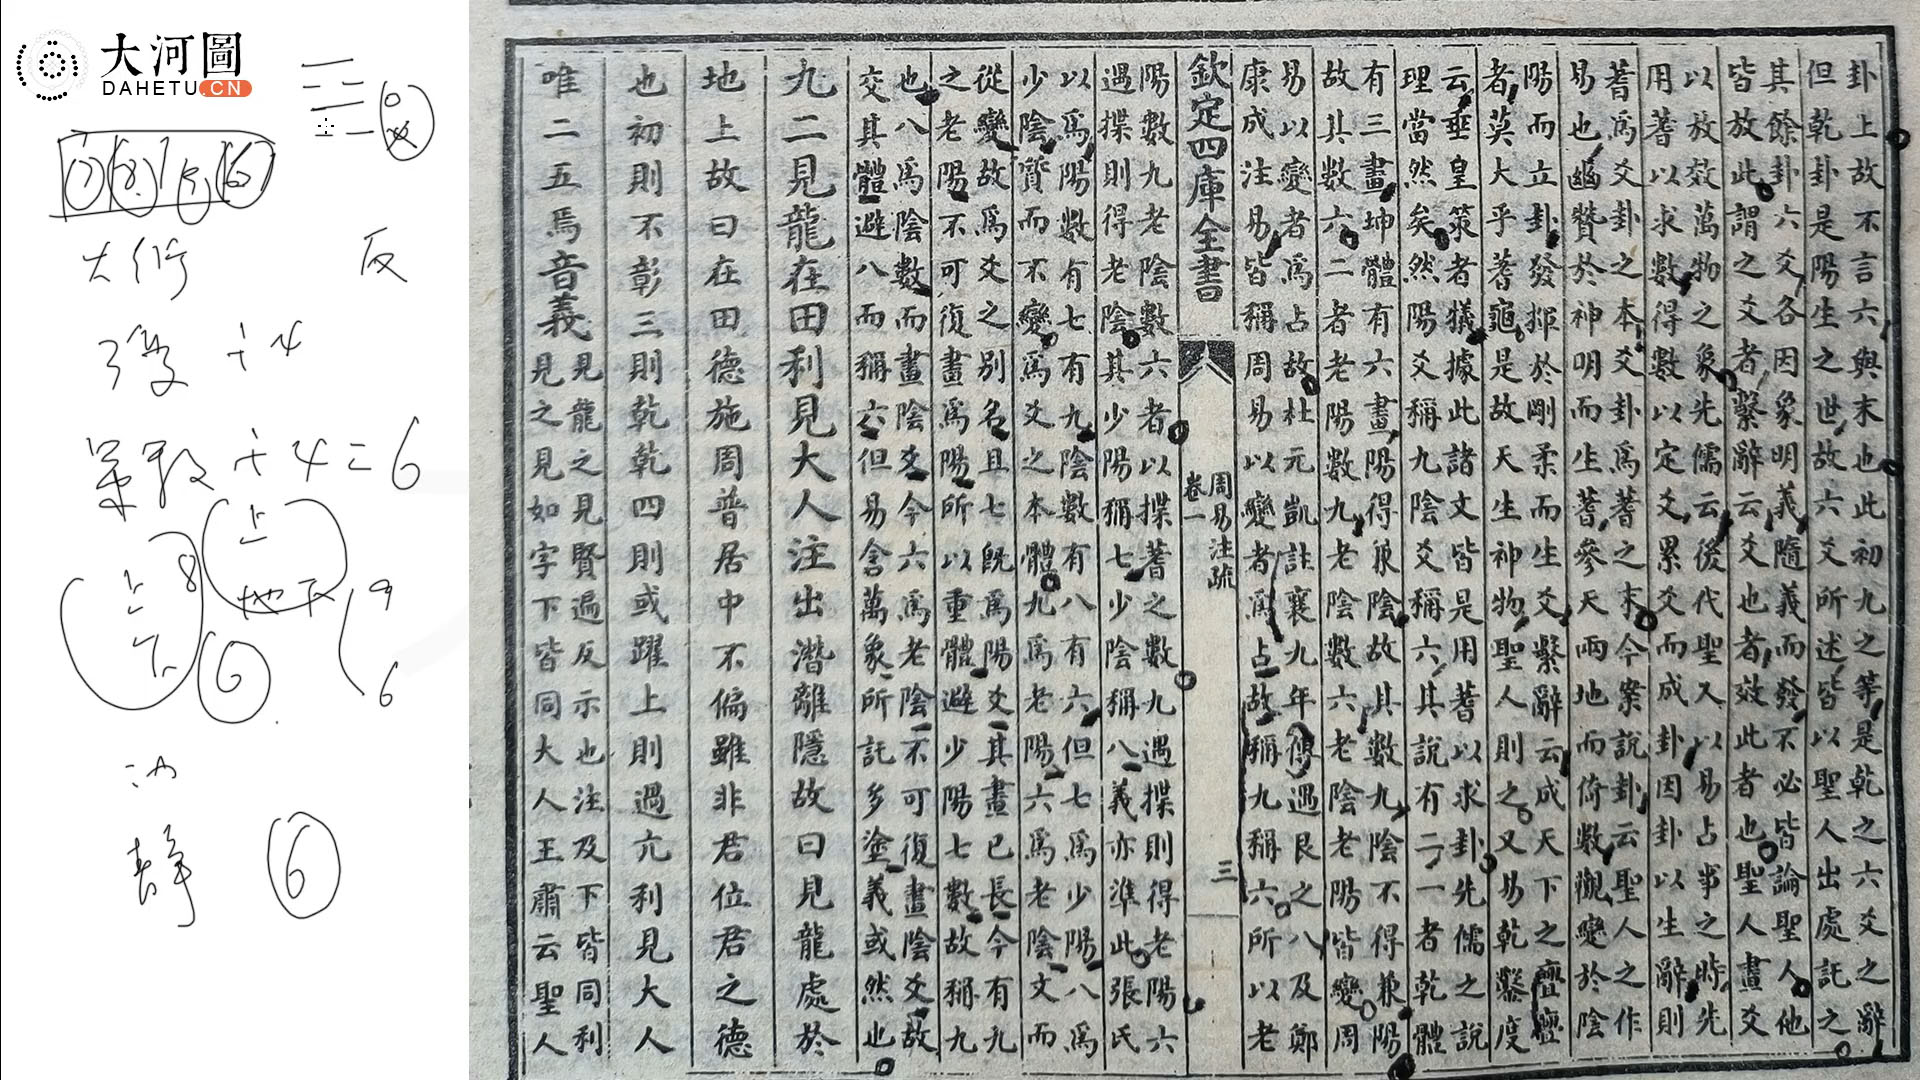 大河圖
DAHETU.CN
7 8 9 6
大衍
反
3変 ÷4
策数 ÷4=6
上
地下
8
9
6
上
下
6
静
6
卦上故不言六與末也此初九之等是乾之六爻之辭
但乾卦是陽生之世故六爻所述皆以聖人出處託之
其餘卦六爻各因象明義隨義而發不必皆論聖人他
皆放此謂之爻者繫辭云爻也者效此者也聖人畫爻
以放效萬物之象先儒云後代聖人以易占事之時先
用蓍以求數得數以定爻累爻而成卦因卦以生辭則
蓍為爻卦之本爻卦為蓍之末今案說卦云聖人之作
易也幽贊於神明而生蓍參天兩地而倚數觀變於陰
陽而立卦發揮於剛柔而生爻繫辭云成天下之亹亹
者莫大乎蓍龜是故天生神物聖人則之又易乾鑿度
云垂皇策者犧據此諸文皆是用蓍以求卦先儒之說
理當然矣然陽爻稱九陰爻稱六其說有二一者乾體
有三畫坤體有六畫陽得兼陰故其數九陰不得兼陽
故其數六二者老陽數九老陰數六老陰老陽皆變周
易以變者為占故杜元凱註襄九年傳遇艮之八及鄭
康成注易皆稱周易以變者為占故稱九稱六所以老
欽定四庫全書
周易注疏
卷一
三
陽數九老陰數六者以揲蓍之數九遇揲則得老陽六
遇揲則得老陰其少陽稱七少陰稱八義亦準此張氏
以為陽數有七有九陰數有八有六但七為少陽八為
少陰質而不變為爻之本體九為老陽六為老陰文而
從變故為爻之別名且七既為陽爻其畫已長今有九
之老陽不可復畫為陽所以重體避少陽七數故稱九
也八為陰數而畫陰爻今六為老陰不可復畫陰爻故
交其體避八而稱六但易含萬象所託多塗義或然也
九二見龍在田利見大人注出潛離隱故曰見龍處於
地上故曰在田德施周普居中不偏雖非君位君之德
也初則不彰三則乾乾四則或躍上則過亢利見大人
唯二五焉音義
見龍之見見賢遍反示也注及下皆同利
見之見如字下皆同大人王肅云聖人